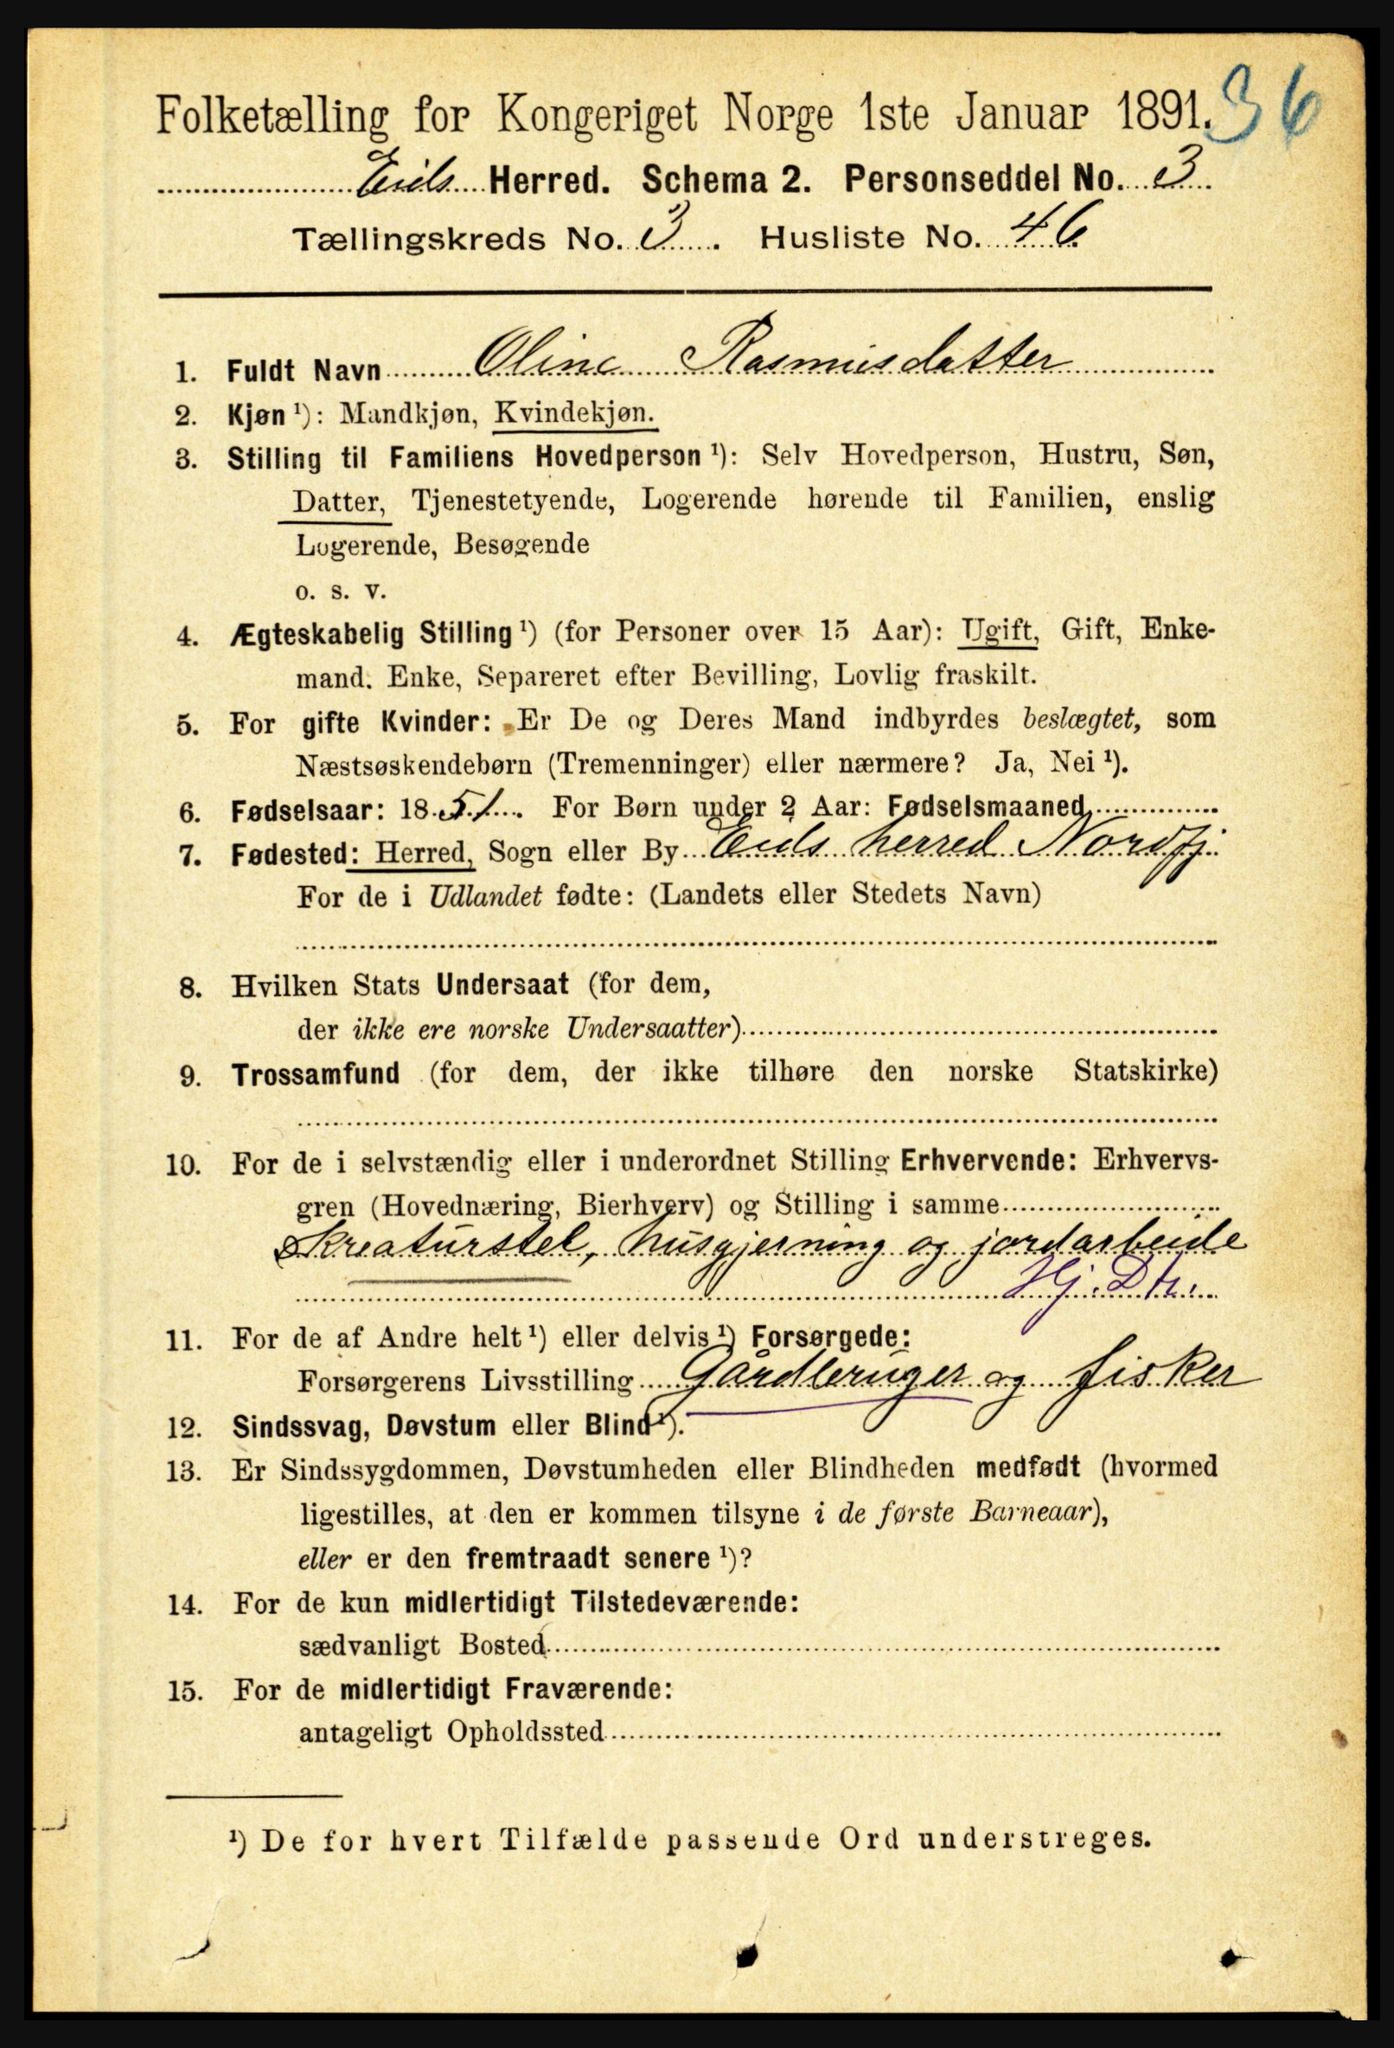 36
Folketælling for Kongeriget Norge 1ste Januar 1891.
Eids Herred. Schema 2. Personseddel No. 3
Tællingskreds No. 3. Husliste No. 46
1. Fuldt Navn Oline Rasmusdatter
2. Kjøn ¹): Mandkjøn, Kvindekjøn.
3. Stilling til Familiens Hovedperson ¹): Selv Hovedperson, Hustru, Søn,
Datter, Tjenestetyende, Logerende hørende til Familien, enslig
Logerende, Besøgende
o. s. v.
4. Ægteskabelig Stilling ¹) (for Personer over 15 Aar): Ugift, Gift, Enke-
mand. Enke, Separeret efter Bevilling, Lovlig fraskilt.
5. For gifte Kvinder: Er De og Deres Mand indbyrdes beslægtet, som
Næstsøskendebørn (Tremenninger) eller nærmere? Ja, Nei ¹).
6. Fødselsaar: 1851. For Børn under 2 Aar: Fødselsmaaned
7. Fødested: Herred, Sogn eller By Eids herred Nordfj.
For de i Udlandet fødte: (Landets eller Stedets Navn)
8. Hvilken Stats Undersaat (for dem,
der ikke ere norske Undersaatter)
9. Trossamfund (for dem, der ikke tilhøre den norske Statskirke)
10. For de i selvstændig eller i underordnet Stilling Erhvervende: Erhvervs-
gren (Hovednæring, Bierhverv) og Stilling i samme
Kreaturstel, husgjerning og jordarbeide
Hj. Dtr.
11. For de af Andre helt ¹) eller delvis ¹) Forsørgede:
Forsørgerens Livsstilling Gårdbruger og fisker
12. Sindssvag, Døvstum eller Blind ¹).
13. Er Sindssygdommen, Døvstumheden eller Blindheden medfødt (hvormed
ligestilles, at den er kommen tilsyne i de første Barneaar),
eller er den fremtraadt senere ¹)?
14. For de kun midlertidigt Tilstedeværende:
sædvanligt Bosted
15. For de midlertidigt Fraværende:
antageligt Opholdssted
¹) De for hvert Tilfælde passende Ord understreges.